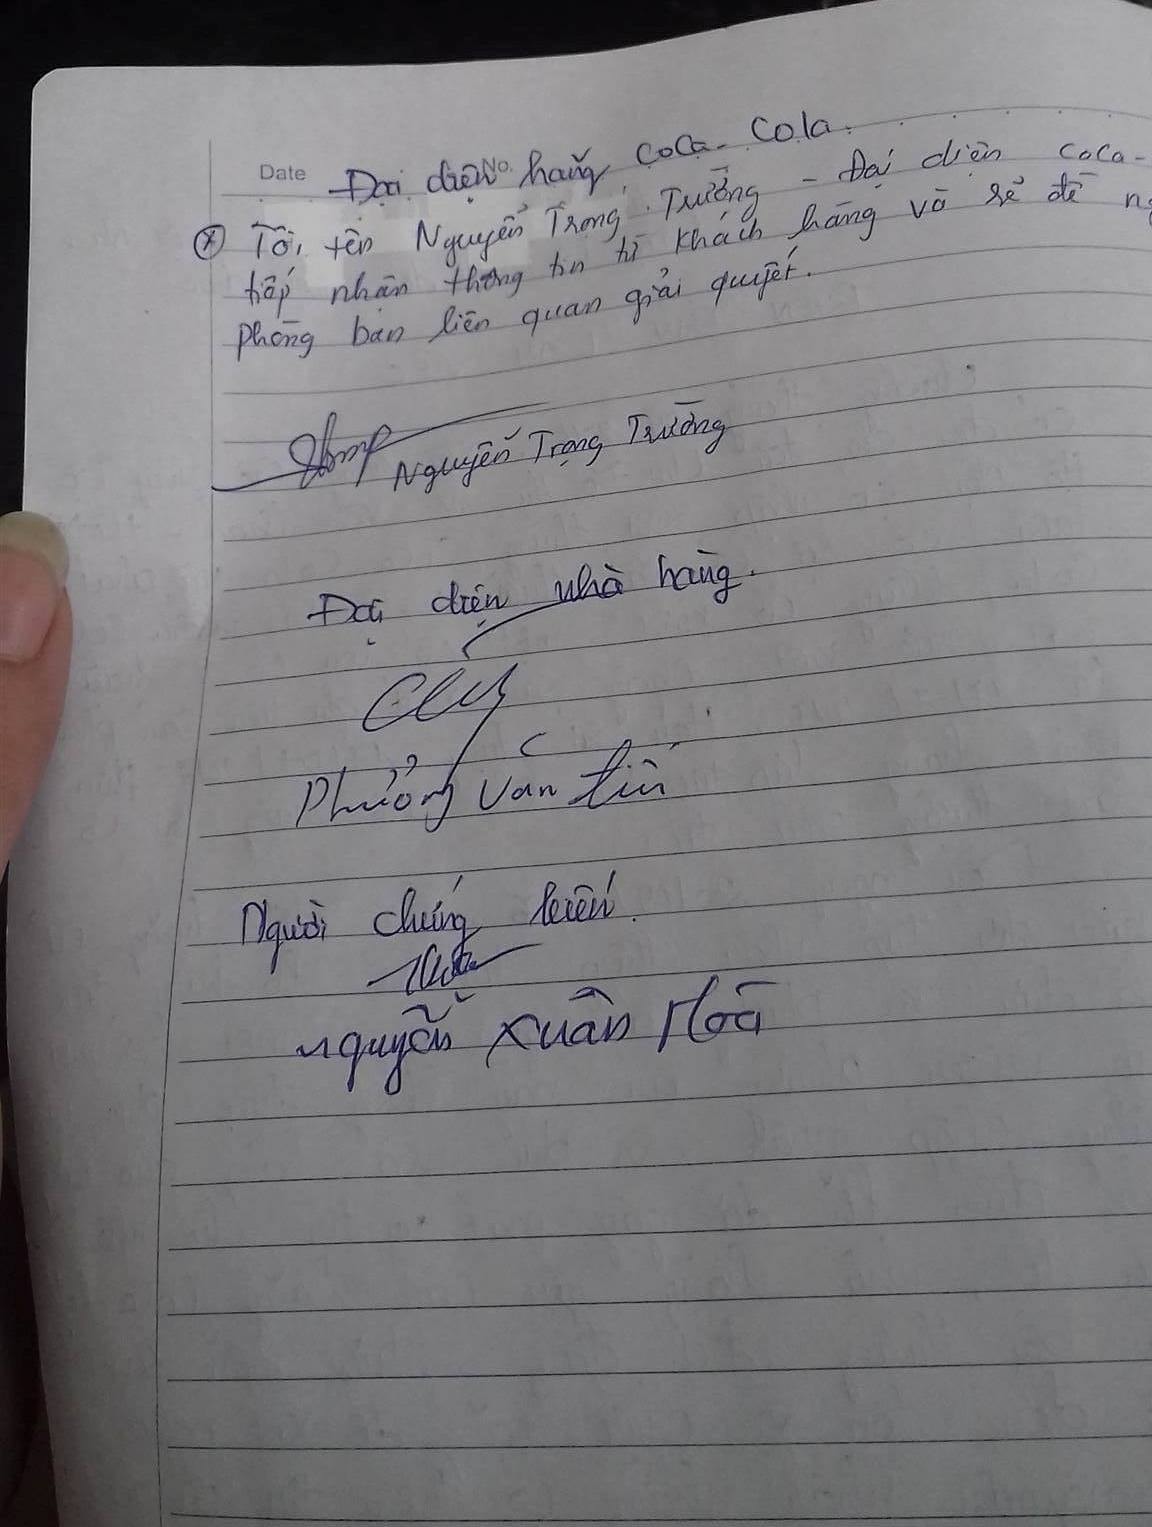 Date No.
Đại diện hãng Coca-Cola.
* Tôi tên Nguyễn Trọng Trường - Đại diện Coca-
tiếp nhận thông tin từ khách hàng và sẽ đề
phòng ban liên quan giải quyết.
Nguyễn Trọng Trường
Đại diện nhà hàng.
Văn
Người chứng kiến.
Nguyễn Xuân Hoà